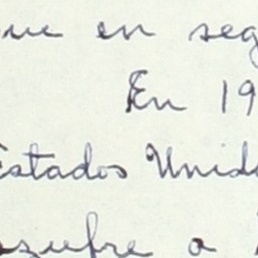 que en seg
En 19
Estados Unid
azufre a